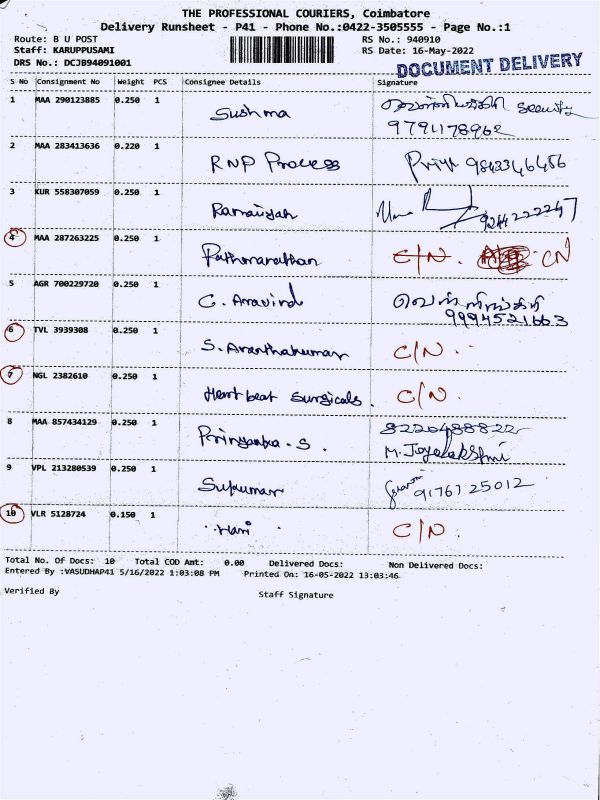 THE PROFESSIONAL COURIERS, Coimbatore
Delivery Runsheet - P41 - Phone No.:0422-3505555 - Page No.:1
Route: B U POST RS No.: 940910
Staff: KARUPPUSAMI RS Date: 16-May-2022
DRS No.: DCJB94091001
DOCUMENT DELIVERY
S No Consignment No Weight PCS Consignee Details Signature
1 MAA 290123885 0.250 1 Sushma security
9791178962
2 MAA 283413636 0.220 1 RNP Process Priya 9843346456
3 KUR 558307059 0.250 1 Ramaiyah
4 MAA 287263225 0.250 1 Pathmanathan C/N. CN
5 AGR 700229720 0.250 1 G. Aravind
9994521663
6 TVL 3939308 0.250 1 S. Ananthakumar C/N.
7 NGL 2382610 0.250 1 Heart beat Surgicals. C/N.
8 MAA 857434129 0.250 1 Priyanka. S. 8220488822
M. Joyalakshmi
9 VPL 213280539 0.250 1 Sukumar 9176725012
10 VLR 5128724 0.150 1 Hari C/N.
Total No. Of Docs: 10 Total COD Amt: 0.00 Delivered Docs: Non Delivered Docs:
Entered By :VASUDHAP41 5/16/2022 1:03:08 PM Printed On: 16-05-2022 13:03:46
Verified By Staff Signature